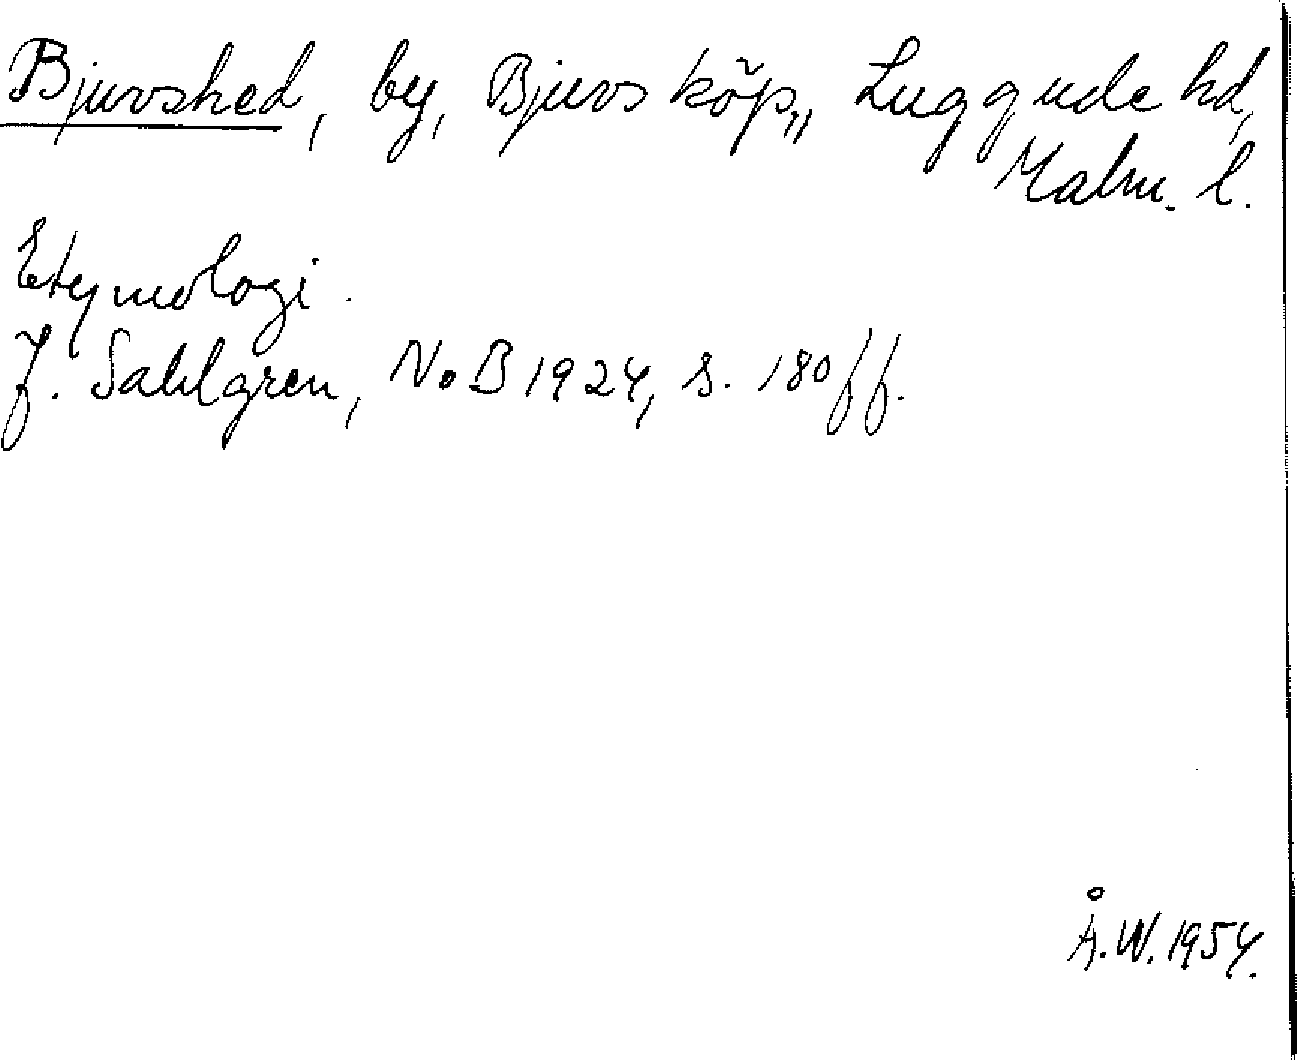 Bjuvshed, by, Bjuvs köp,, Luggude hd,
Malm. l.
Etymologi.
J. Sahlgren, NoB 1924, s. 180 ff.
Å.W. 1954.